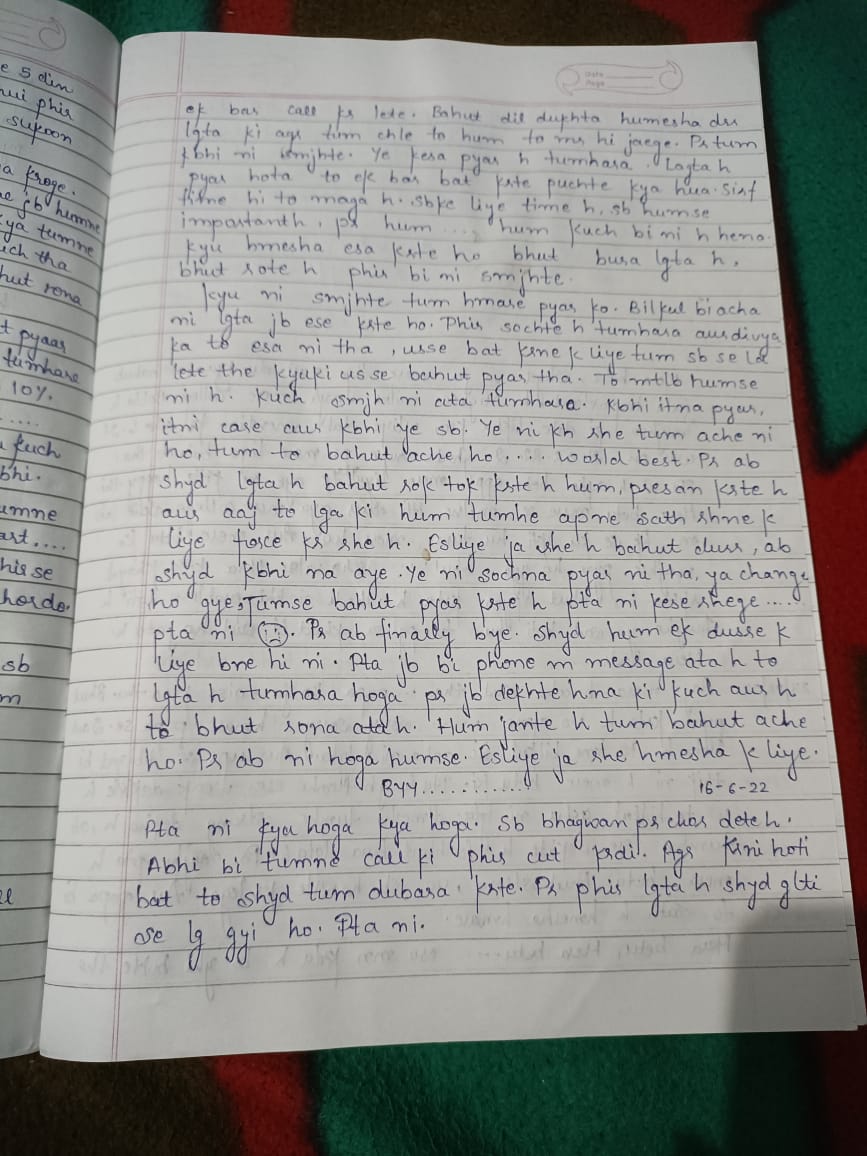 e 5 din
hui phir
sukoon
a kroge.
ne sb humne
kya tumne
uch tha
hut rona
t pyaar
tumhare
10%.
....
kuch
bhi.
umne
art....
hisse
hordo.
sb
m
Date
Page
ek bar call kr lete. Bahut dil dukhta humesha dr
lgta ki agr tum chle to hum to mr hi jaege. Pr tum
kbhi ni smjhte. Ye kesa pyar h tumhara. Lagta h
pyar hota to ek bar bat krte puchte kya hua. sirf
time hi to maga h. sbke liye time h, sb humse
important h, pr hum.... hum kuch bi ni h hena.
kyu hmesha esa krte ho bhut bura lgta h,
bhut rote h phir bi ni smjhte.
kyu ni smjhte tum hmare pyar ko. Bilkul bi acha
ni lgta jb ese krte ho. Phir sochte h tumhara aur divya
ka to esa ni tha, usse bat krne k liye tum sb se ld
lete the kyuki usse bahut pyar tha. To mtlb humse
ni h. kuch smjh ni ata tumhara. kbhi itna pyar,
itni care aur kbhi ye sb. Ye ni kh rhe tum ache ni
ho, tum to bahut ache ho.... world best. Pr ab
shyd lgta h bahut rok tok krte h hum, presan krte h
aur aaj to lga ki hum tumhe apne sath rhne k
liye force kr rhe h. Esliye ja rhe h bahut dur, ab
shyd kbhi na aye. Ye ni sochna pyar ni tha, ya change
ho gye. Tumse bahut pyar krte h pta ni kese rhege.....
pta ni ☹. Pr ab finally bye. shyd hum ek dusre k
liye bne hi ni. Pta jb bi phone m message ata h to
lgta h tumhara hoga pr jb dekhte hna ki kuch aur h
to bhut rona ata h. Hum jante h tum bahut ache
ho. Pr ab ni hoga humse. Esliye ja rhe hmesha k liye.
BYY............ 16-6-22
Pta ni kya hoga kya hoga. Sb bhagwan pr chor dete h.
Abhi bi tumne call ki phir cut krdi. Agr krni hoti
bat to shyd tum dubara krte. Pr phir lgta h shyd glti
se lg gyi ho. Pta ni.